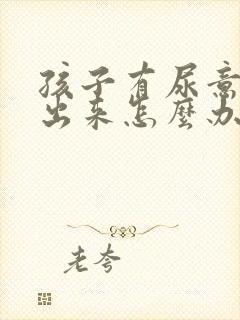 孩子有尿意
出来怎麽办
老夸